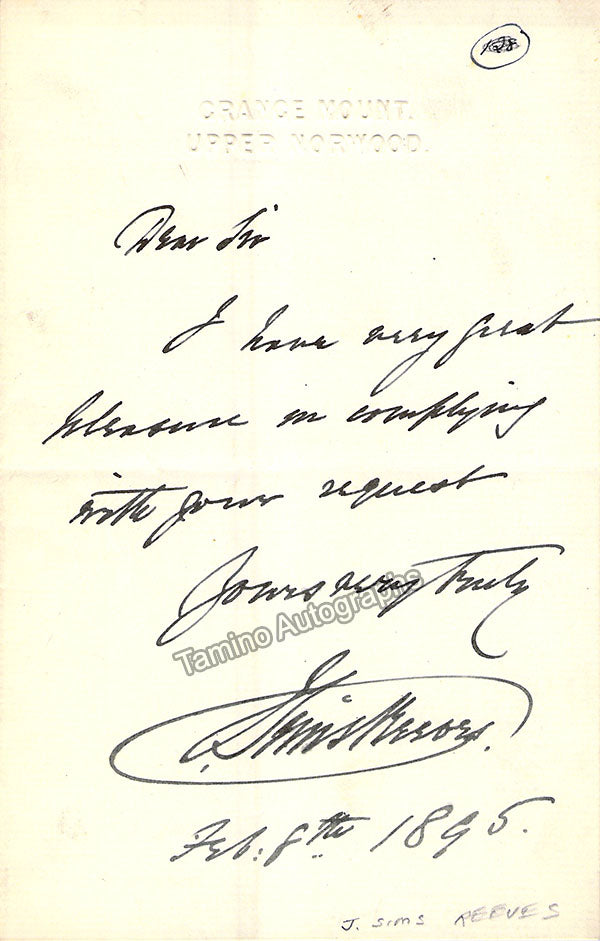 GRANGE MOUNT.
UPPER NORWOOD.
Dear Sir
I have very great
pleasure in complying
with your request
Yours very truly
Tamino Autographs
J Sims Reeves.
Feb: 8th 1895.
J. SIMS REEVES